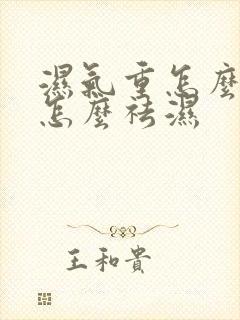 濕氣重怎麼
怎麼祛濕
王和貴